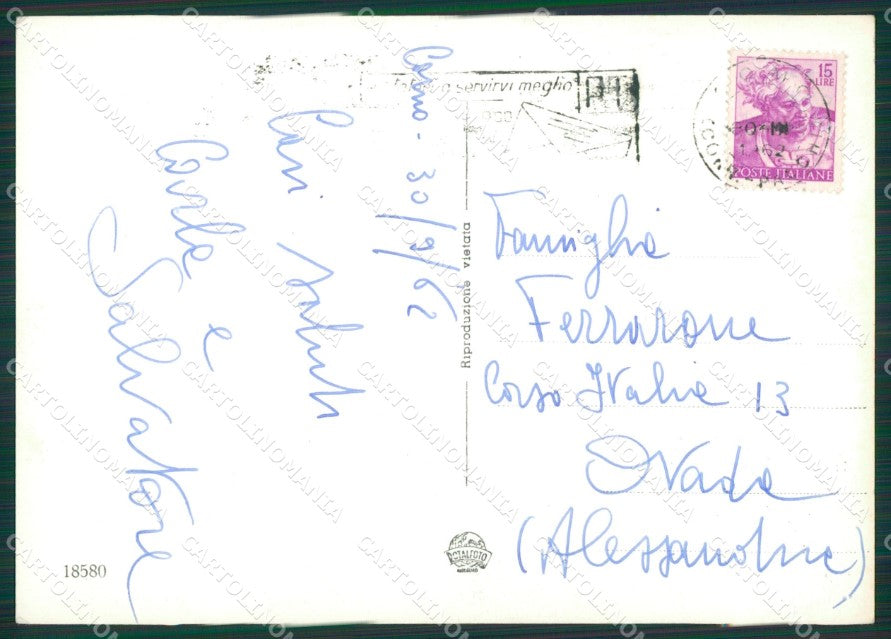 Como - 30/9/62
Cari saluti
Carla
e
Salvatore
servirvi meglio
15
LIRE
POSTE ITALIANE
Riproduzione vietata
Famiglia
Ferrarone
Corso Italia 13
Ovada
(Alessandria)
18580
CARTOLINOMANIA